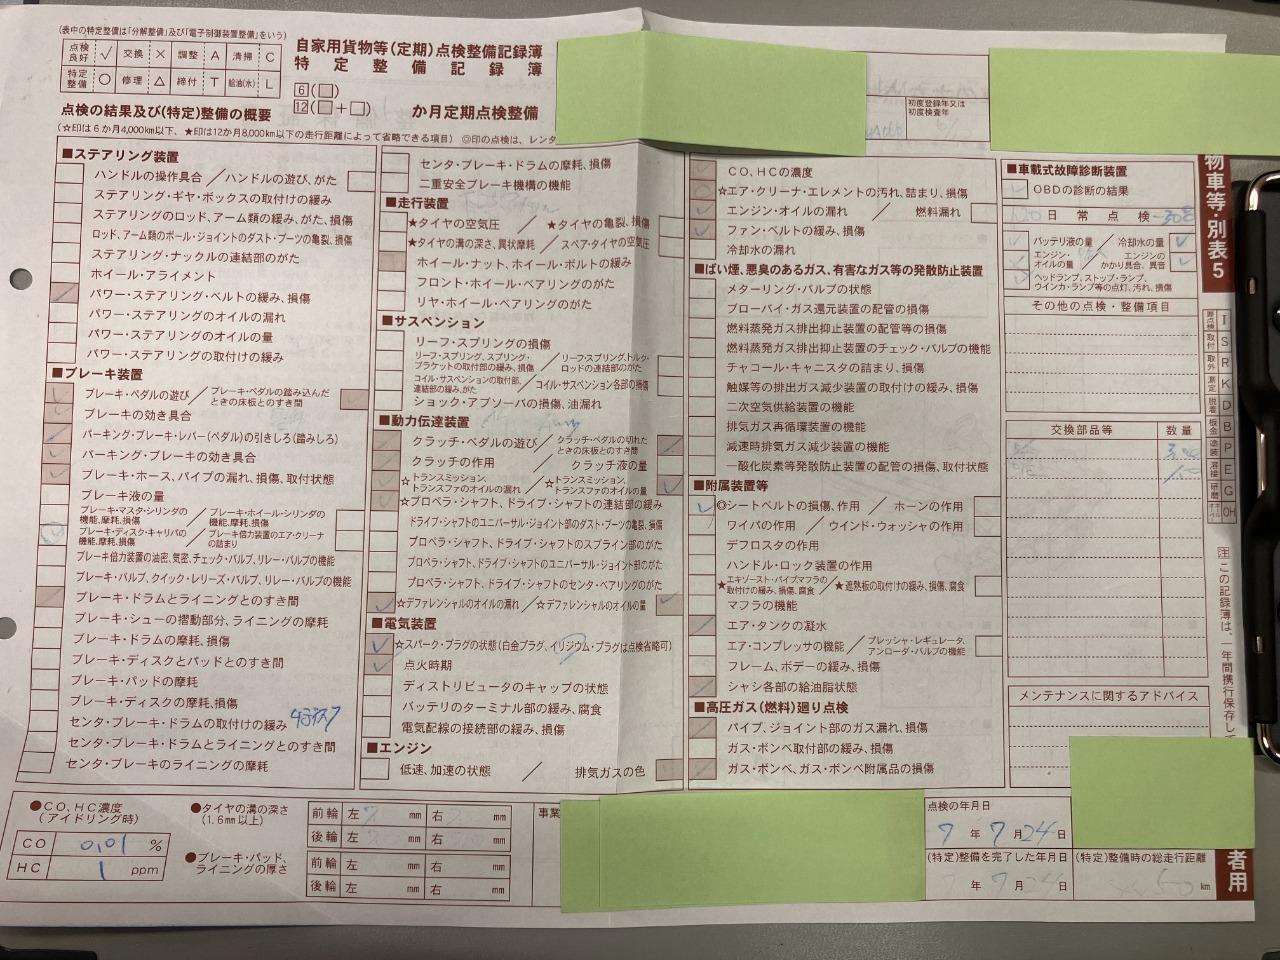 (表中の特定整備は「分解整備」及び「電子制御装置整備」をいう)
点検良好 ✓ 交換 × 調整 A 清掃 C
特定整備 ○ 修理 △ 締付 T 給油(水) L
自家用貨物等(定期)点検整備記録簿
特定整備記録簿
6(□)
12(□+□) か月定期点検整備
点検の結果及び(特定)整備の概要
(☆印は6か月4,000km以下、★印は12か月8,000km以下の走行距離によって省略できる項目) ◎印の点検は、レンタ
初度登録年又は
初度検査年
■ステアリング装置
ハンドルの操作具合/ハンドルの遊び、がた
ステアリング・ギヤ・ボックスの取付けの緩み
ステアリングのロッド、アーム類の緩み、がた、損傷
ロッド、アーム類のボール・ジョイントのダスト・ブーツの亀裂、損傷
ステアリング・ナックルの連結部のがた
ホイール・アライメント
パワー・ステアリング・ベルトの緩み、損傷
パワー・ステアリングのオイルの漏れ
パワー・ステアリングのオイルの量
パワー・ステアリングの取付けの緩み
■ブレーキ装置
ブレーキ・ペダルの遊び/ブレーキ・ペダルの踏み込んだときの床板とのすき間
ブレーキの効き具合
パーキング・ブレーキ・レバー(ペダル)の引きしろ(踏みしろ)
パーキング・ブレーキの効き具合
ブレーキ・ホース、パイプの漏れ、損傷、取付状態
ブレーキ液の量
ブレーキ・マスタ・シリンダの機能、摩耗、損傷/ブレーキ・ホイール・シリンダの機能、摩耗、損傷
ブレーキ・ディスク・キャリパの機能、摩耗、損傷/ブレーキ倍力装置のエア・クリーナの詰まり
ブレーキ倍力装置の油密、気密、チェック・バルブ、リレー・バルブの機能
ブレーキ・バルブ、クイック・レリーズ・バルブ、リレー・バルブの機能
ブレーキ・ドラムとライニングとのすき間
ブレーキ・シューの摺動部分、ライニングの摩耗
ブレーキ・ドラムの摩耗、損傷
ブレーキ・ディスクとパッドとのすき間
ブレーキ・パッドの摩耗
ブレーキ・ディスクの摩耗、損傷
センタ・ブレーキ・ドラムの取付けの緩み
センタ・ブレーキ・ドラムとライニングとのすき間
センタ・ブレーキのライニングの摩耗
センタ・ブレーキ・ドラムの摩耗、損傷
二重安全ブレーキ機構の機能
■走行装置
★タイヤの空気圧/★タイヤの亀裂、損傷
★タイヤの溝の深さ、異状摩耗/スペア・タイヤの空気圧
ホイール・ナット、ホイール・ボルトの緩み
フロント・ホイール・ベアリングのがた
リヤ・ホイール・ベアリングのがた
■サスペンション
リーフ・スプリングの損傷
リーフ・スプリング、スプリング・ブラケットの取付部の緩み、損傷/リーフ・スプリング、トルク・ロッドの連結部のがた
コイル・サスペンションの取付部、連結部の緩み、がた/コイル・サスペンション各部の損傷
ショック・アブソーバの損傷、油漏れ
■動力伝達装置
クラッチ・ペダルの遊び/クラッチ・ペダルの切れたときの床板とのすき間
クラッチの作用/クラッチ液の量
☆トランスミッション、トランスファのオイルの漏れ/☆トランスミッション、トランスファのオイルの量
☆プロペラ・シャフト、ドライブ・シャフトの連結部の緩み
ドライブ・シャフトのユニバーサル・ジョイント部のダスト・ブーツの亀裂、損傷
プロペラ・シャフト、ドライブ・シャフトのスプライン部のがた
プロペラ・シャフト、ドライブ・シャフトのユニバーサル・ジョイント部のがた
プロペラ・シャフト、ドライブ・シャフトのセンタ・ベアリングのがた
☆デファレンシャルのオイルの漏れ/☆デファレンシャルのオイルの量
■電気装置
☆スパーク・プラグの状態(白金プラグ、イリジウム・プラグは点検省略可)
点火時期
ディストリビュータのキャップの状態
バッテリのターミナル部の緩み、腐食
電気配線の接続部の緩み、損傷
■エンジン
低速、加速の状態/排気ガスの色
CO、HCの濃度
☆エア・クリーナ・エレメントの汚れ、詰まり、損傷
エンジン・オイルの漏れ/燃料漏れ
ファン・ベルトの緩み、損傷
冷却水の漏れ
■ばい煙、悪臭のあるガス、有害なガス等の発散防止装置
メターリング・バルブの状態
ブローバイ・ガス還元装置の配管の損傷
燃料蒸発ガス排出抑止装置の配管等の損傷
燃料蒸発ガス排出抑止装置のチェック・バルブの機能
チャコール・キャニスタの詰まり、損傷
触媒等の排出ガス減少装置の取付けの緩み、損傷
二次空気供給装置の機能
排気ガス再循環装置の機能
減速時排気ガス減少装置の機能
一酸化炭素等発散防止装置の配管の損傷、取付状態
■附属装置等
◎シートベルトの損傷、作用/ホーンの作用
ワイパの作用/ウインド・ウォッシャの作用
デフロスタの作用
ハンドル・ロック装置の作用
★エキゾースト・パイプ、マフラの取付けの緩み、損傷、腐食/★遮熱板の取付けの緩み、損傷、腐食
マフラの機能
エア・タンクの凝水
エア・コンプレッサの機能/プレッシャ・レギュレータ、アンローダ・バルブの機能
フレーム、ボデーの緩み、損傷
シャシ各部の給油脂状態
■高圧ガス(燃料)廻り点検
パイプ、ジョイント部のガス漏れ、損傷
ガス・ボンベ取付部の緩み、損傷
ガス・ボンベ、ガス・ボンベ附属品の損傷
■車載式故障診断装置
OBDの診断の結果
日常点検
バッテリ液の量/冷却水の量
エンジン・オイルの量/エンジンのかかり具合、異音
ヘッドランプ、ストップ・ランプ、ウインカ・ランプ等の点灯、汚れ、損傷
その他の点検・整備項目
交換部品等 数量
メンテナンスに関するアドバイス
物車等・別表5
注この記録簿は、一年間携行保存して
者用
●CO、HC濃度
(アイドリング時)
CO 0.01 %
HC 1 ppm
●タイヤの溝の深さ
(1.6mm以上)
前輪 左 7 mm 右 mm
後輪 左 mm 右 mm
●ブレーキ・パッド、
ライニングの厚さ
前輪 左 mm 右 mm
後輪 左 mm 右 mm
事業
点検の年月日
7年7月24日
(特定)整備を完了した年月日
7年7月24日
(特定)整備時の総走行距離
km